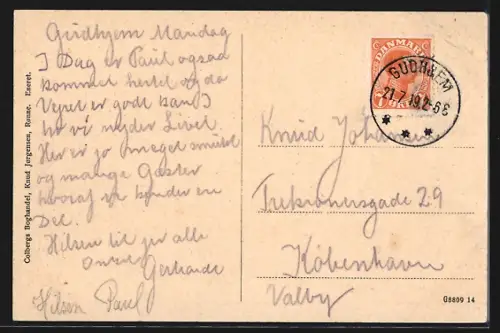 Gudhjem Mandag
I Dag er Paul ogsaa
kommet hertil og da
Vejret er godt kan I
tro vi nyder Livet.
Her er jo meget smukt
og mange Gæster
hvoraf vi kender en
Del.
Hilsen til jer alle
Gerhard
Hilsen Paul
Colbergs Boghandel, Knud Jørgensen, Rønne. Eneret.
DANMARK
GUDHJEM
21.7.19 2-6E
Knud Johansen
Trekronersgade 29
København
Valby
G8809 14